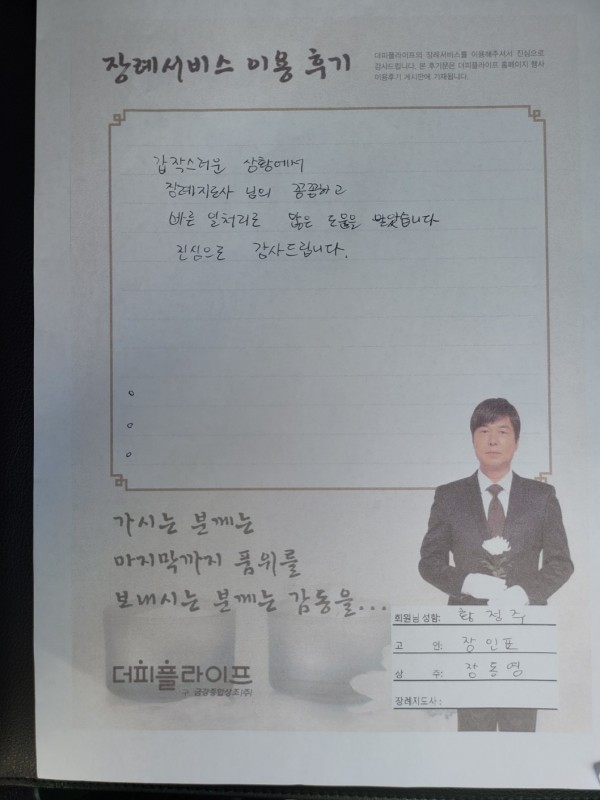 장례서비스 이용 후기
더피플라이프의 장례서비스를 이용해주셔서 진심으로
감사드립니다. 본 후기문은 더피플라이프 홈페이지 행사
이용후기 게시판에 기재됩니다.
갑작스러운 상황에서
장례지도사 님의 꼼꼼하고
빠른 일처리로 많은 도움을 받았습니다
진심으로 감사드립니다.
가시는 분께는
마지막까지 품위를
보내시는 분께는 감동을...
더피플라이프
구. 금강종합상조(주)
회원님 성함: 황정주
고 인: 장인표
상 주: 장동영
장례지도사 :